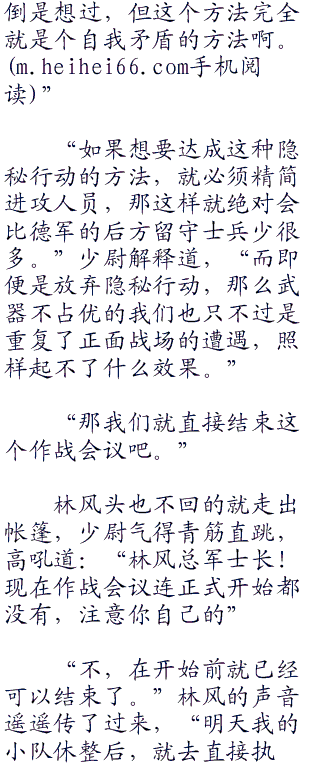 倒是想过，但这个方法完全
就是个自我矛盾的方法啊。
(m.heihei66.com手机阅
读)”
“如果想要达成这种隐
秘行动的方法，就必须精简
进攻人员，那这样就绝对会
比德军的后方留守士兵少很
多。”少尉解释道，“而即
便是放弃隐秘行动，那么武
器不占优的我们也只不过是
重复了正面战场的遭遇，照
样起不了什么效果。”
“那我们就直接结束这
个作战会议吧。”
林风头也不回的就走出
帐篷，少尉气得青筋直跳，
高吼道：“林风总军士长！
现在作战会议连正式开始都
没有，注意你自己的”
“不，在开始前就已经
可以结束了。”林风的声音
遥遥传了过来，“明天我的
小队休整后，就去直接执